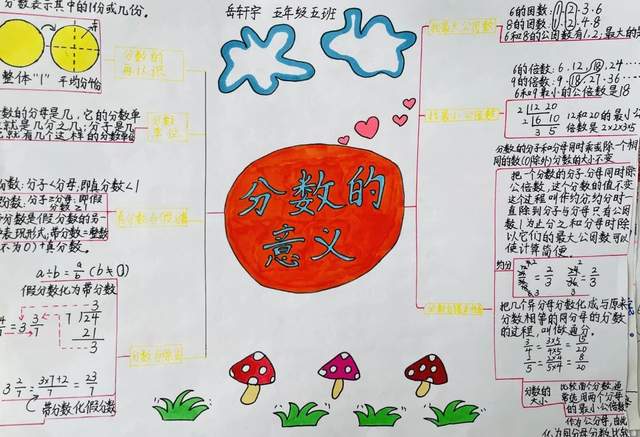 分数表示其中的1份或几份。
整体"1" 平均分4份
分数的
数的分母是几，它的分数单
就是几分之几；分子是几
就有几个这样的分数单位
分数
单位
分数：分子<分母，即真分数<1
分数：分子≥分母，即假
分数≥1
分数是假分数的另一
表现形式，带分数=整数
不为0)+真分数。
a÷b=a/b (b≠0)
假分数化为带分数
3
7 24
21
3
=3 3/7
3 2/7 = 3×7+2/7 = 23/7
带分数化假分数
岳轩宇 五年级五班
分数的
意义
最大公因数
最小公倍数
6的因数：1.2.3.6
8的因数：1.2.4.8
6和8的公因数有1.2，最大的是
6的倍数：6.12.18.24
9的倍数：9.18.27.36
6和9最小的公倍数是18
2 12 20
2 6 10
3 5
12和20的最小公
倍数是2×2×3×5
分数的分子和分母同时乘或除一个相
同的数(0除外)分数的大小不变
把一个分数的分子·分母同时除
公倍数，这个分数的值不变
这个过程叫作约分；约分时一
直除到分子与分母只有公因
数1为止
以它们的最大公因数可以
使计算简便。
约分
= 2/3
= 2/3
把几个异分母分数化成与原来
分数相等的同分母的分数
的过程，叫做通分。
3/4 = 3×5/4×5 = 15/20
2/5 = 2×4/5×4 = 8/20
分数的
大小
比较两个分数，通
常使用两个分母
的最小公倍数
作为公分母，
化为同分母分数，比较